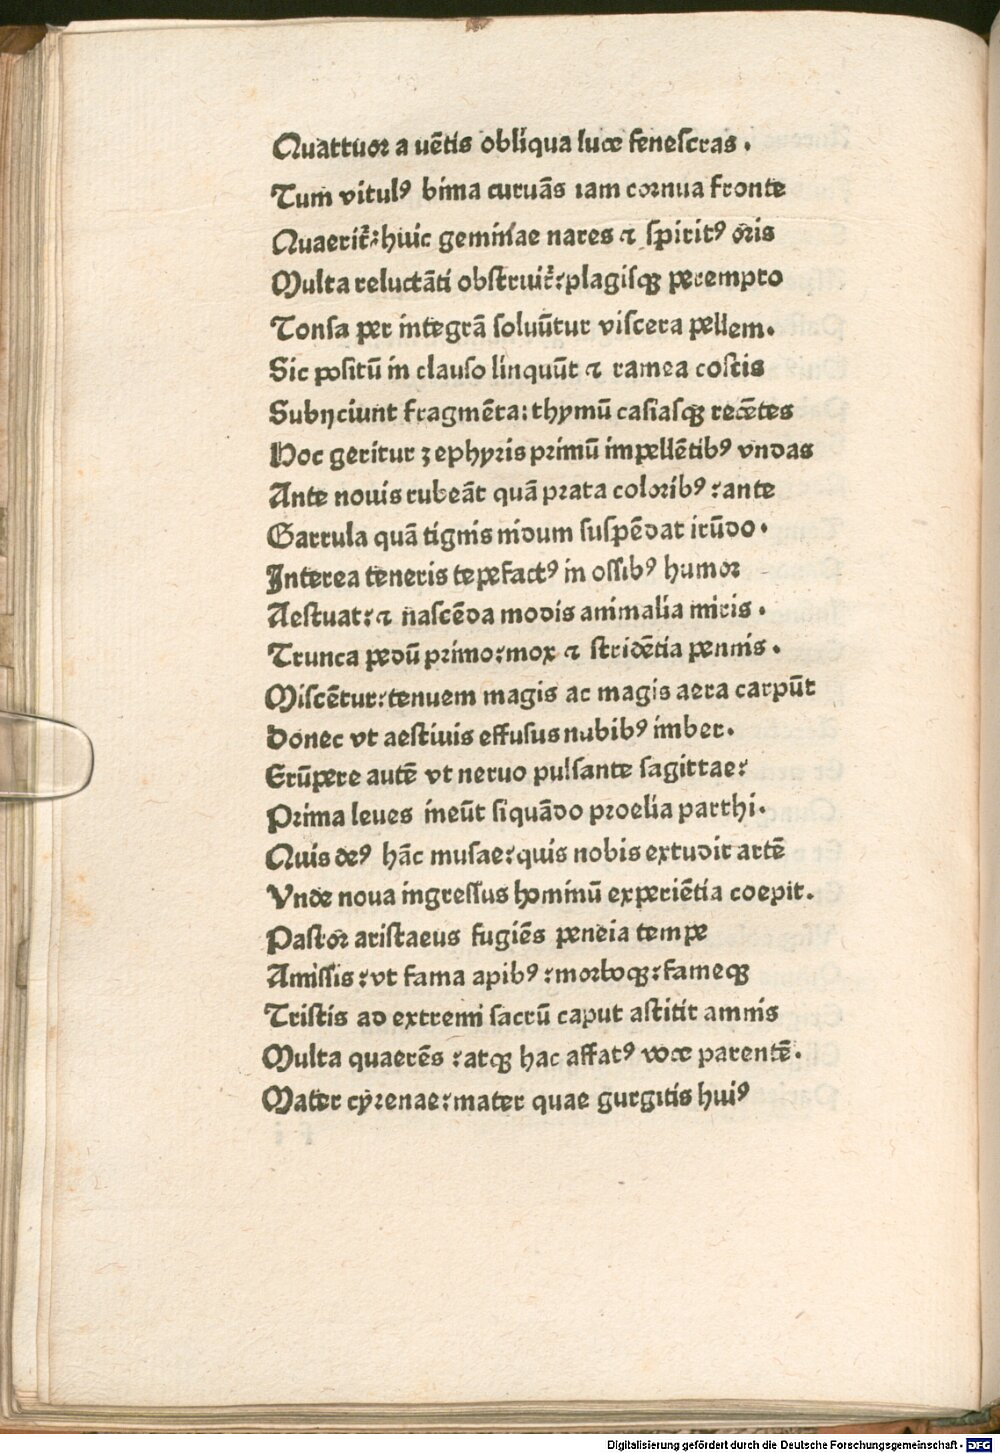 Quattuor a uētis obliqua luce fenescras .
Tum vitulꝰ bima curuās iam cornua fronte
Quaerit᷑: huic geminae nares ⁊ spiritꝰ oris
Multa reluctāti obstruit᷑: plagisqꝫ perempto
Tonsa per integrā soluūtur viscera pellem.
Sic positū in clauso linquūt ⁊ ramea costis
Subijciunt fragmēta: thymū casiasqꝫ recētes
Hoc geritur zephyris primū impellētibꝰ vndas
Ante nouis rubeāt quā prata coloribꝰ: ante
Garrula quā tignis nidum suspēdat irūdo.
Interea teneris tepefactꝰ in ossibꝰ humor
Aestuat: ⁊ nascēda modis animalia miris .
Trunca pedū primo: mox ⁊ stridētia pennis .
Miscētur: tenuem magis ac magis aera carpūt
Donec vt aestiuis effusus nubibꝰ imber.
Erūpere autē vt neruo pulsante sagittae:
Prima leues ineūt siquādo proelia parthi.
Quis deꝰ hāc musae: quis nobis extudit artē
Vnde noua ingressus hominū experiētia coepit.
Pastor aristaeus fugiēs peneia tempe
Amissis: vt fama apibꝰ: morboqꝫ: fameqꝫ
Tristis ad extremi sacrū caput astitit amnis
Multa quaerēs: atqꝫ hac affatꝰ voce parentē.
Mater cyrenae: mater quae gurgitis huiꝰ
Digitalisierung gefördert durch die Deutsche Forschungsgemeinschaft - DFG